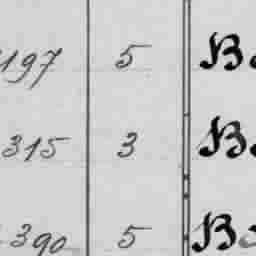 197 5 B
315 3 B
390 5 B